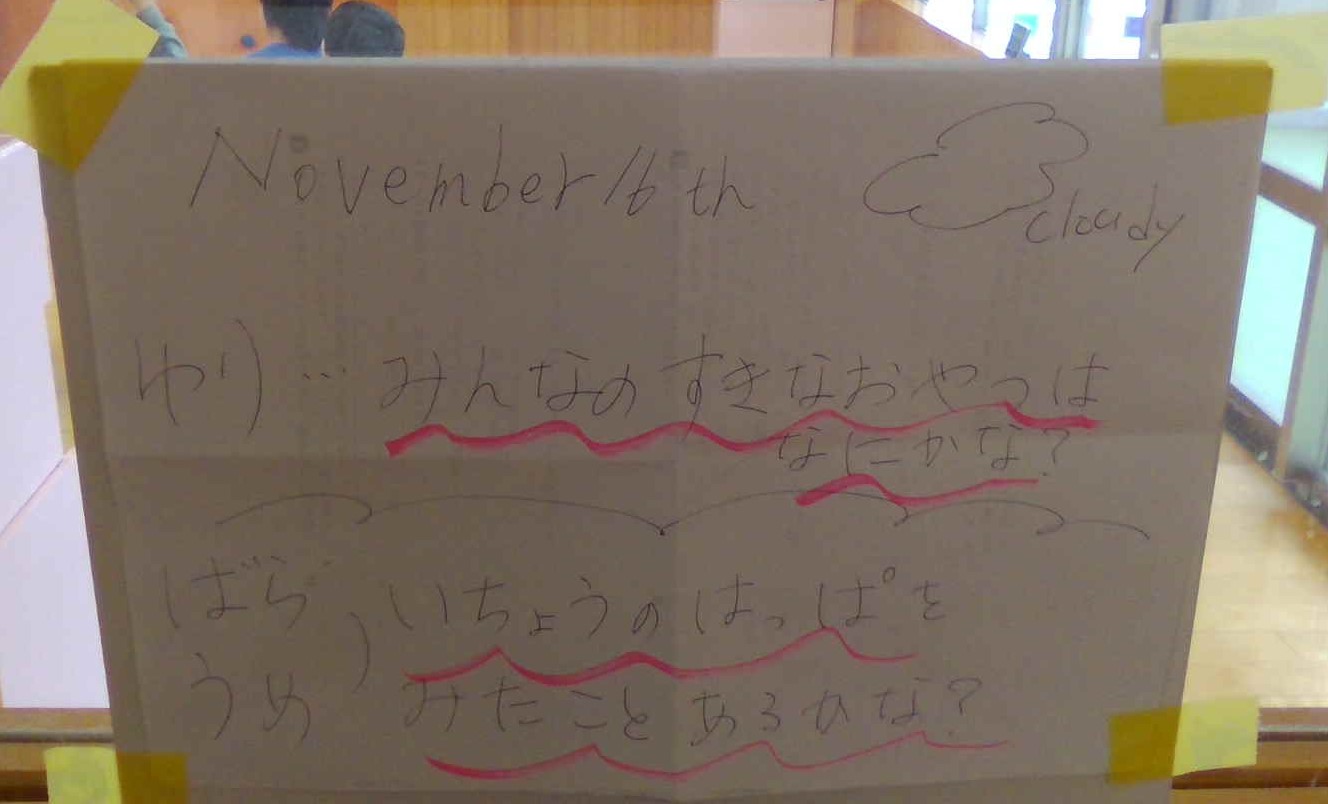 November 16th
cloudy
ゆり… みんなのすきなおやつは
なにかな?
ばら いちょうのはっぱを
うめ みたことあるかな?